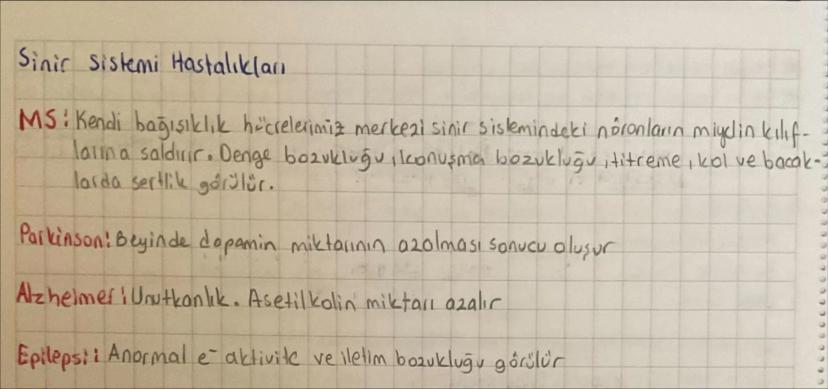 Sinir Sistemi Hastalıkları
MS: Kendi bağışıklık hücrelerimiz merkezi sinir sistemindeki nöronların miyelin kılıf-
larına saldırır. Denge bozukluğu, konuşma bozukluğu, titreme, kol ve bacak-
larda sertlik görülür.
Parkinson: Beyinde dopamin miktarının azalması sonucu oluşur
Alzheimer: Unutkanlık. Asetilkolin miktarı azalır
Epilepsi: Anormal e⁻ aktivite ve iletim bozukluğu görülür